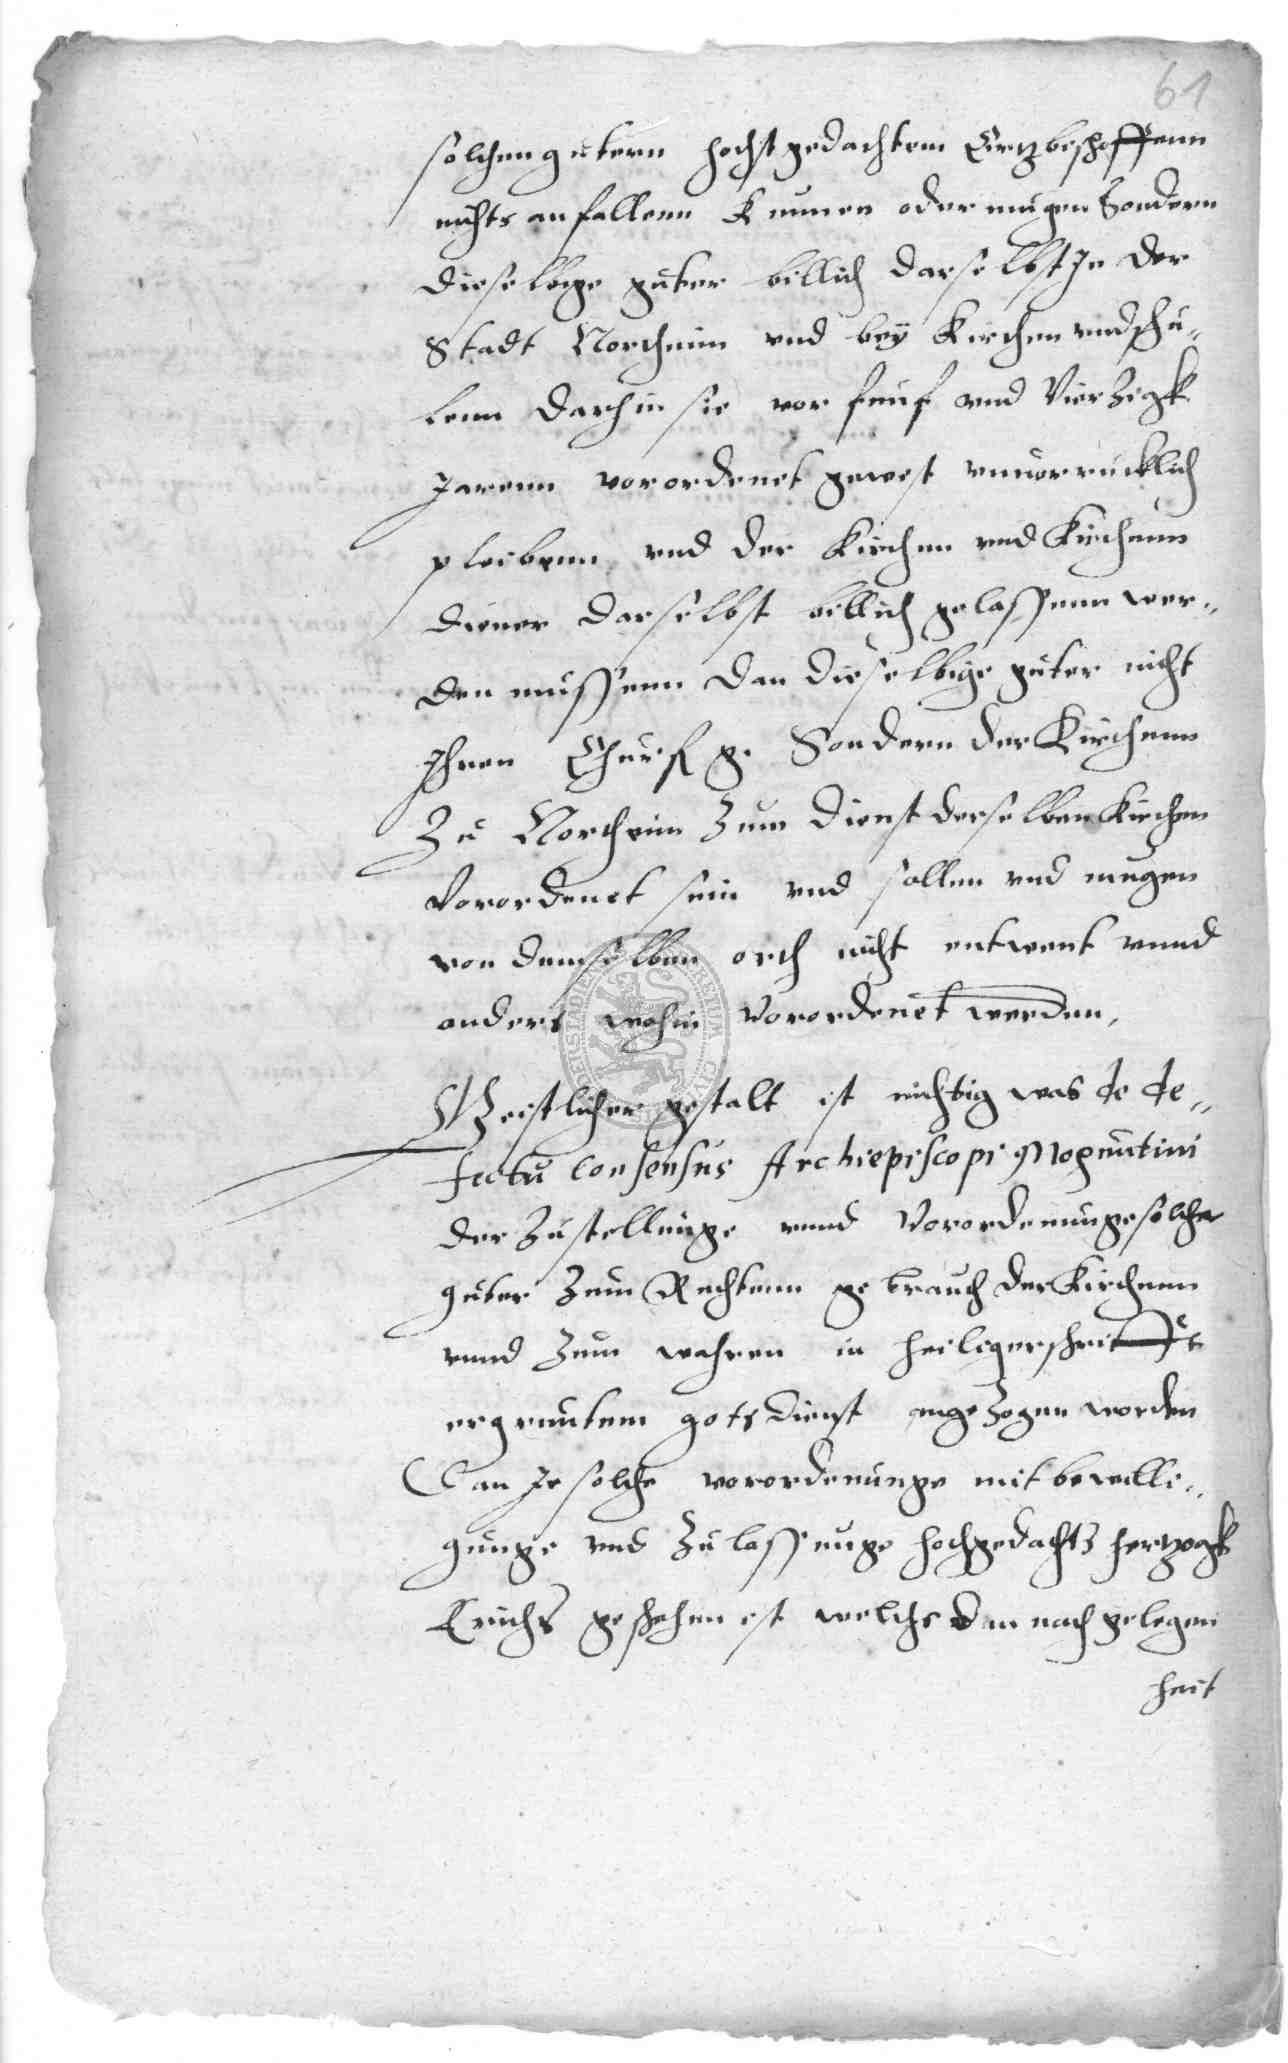 61
solchen gutern hochstgedachtem Ertzbischoffenn
nichts anfallenn kunnen oder mugen Sondern
dieselbige guter billich darselbst In der
Stadt Northeim vnd bey Kirchen vnd schu„
lenn darhin sie vor funf vnd Vierzigk
Jarenn verordenet gewest vnuorrucklich
pleibenn vnd der Kirchen vnd Kirchenn
diener darselbst billich gelassenn wer„
den mussenn dan dieselbige guter nicht
Ihren Churf g. Sondern der Kirchenn
Zu Northeim Zum dienst derselben Kirchen
Verordenet sein vnd sollen vnd mugen
von demselben orth nicht entwent vnnd
anders wohin Verordenet werden,
Geistlicher gestalt ist nichtig was de de„
fectu Consensus Archiepiscopi Moguntini
der Zustellunge vnnd Verordenunge solcher
guter Zum Rechtenn gebrauch der Kirchenn
vnnd Zum wahren in heiliger schrifft
ergruntem gotsdienst angezogen worden
Dan Je solche verordenunge mit bewilli„
gunge vnd Zulassunge hochgedachts hertzogk
Erichs geschehen ist welchs dan nach gelegen
heit